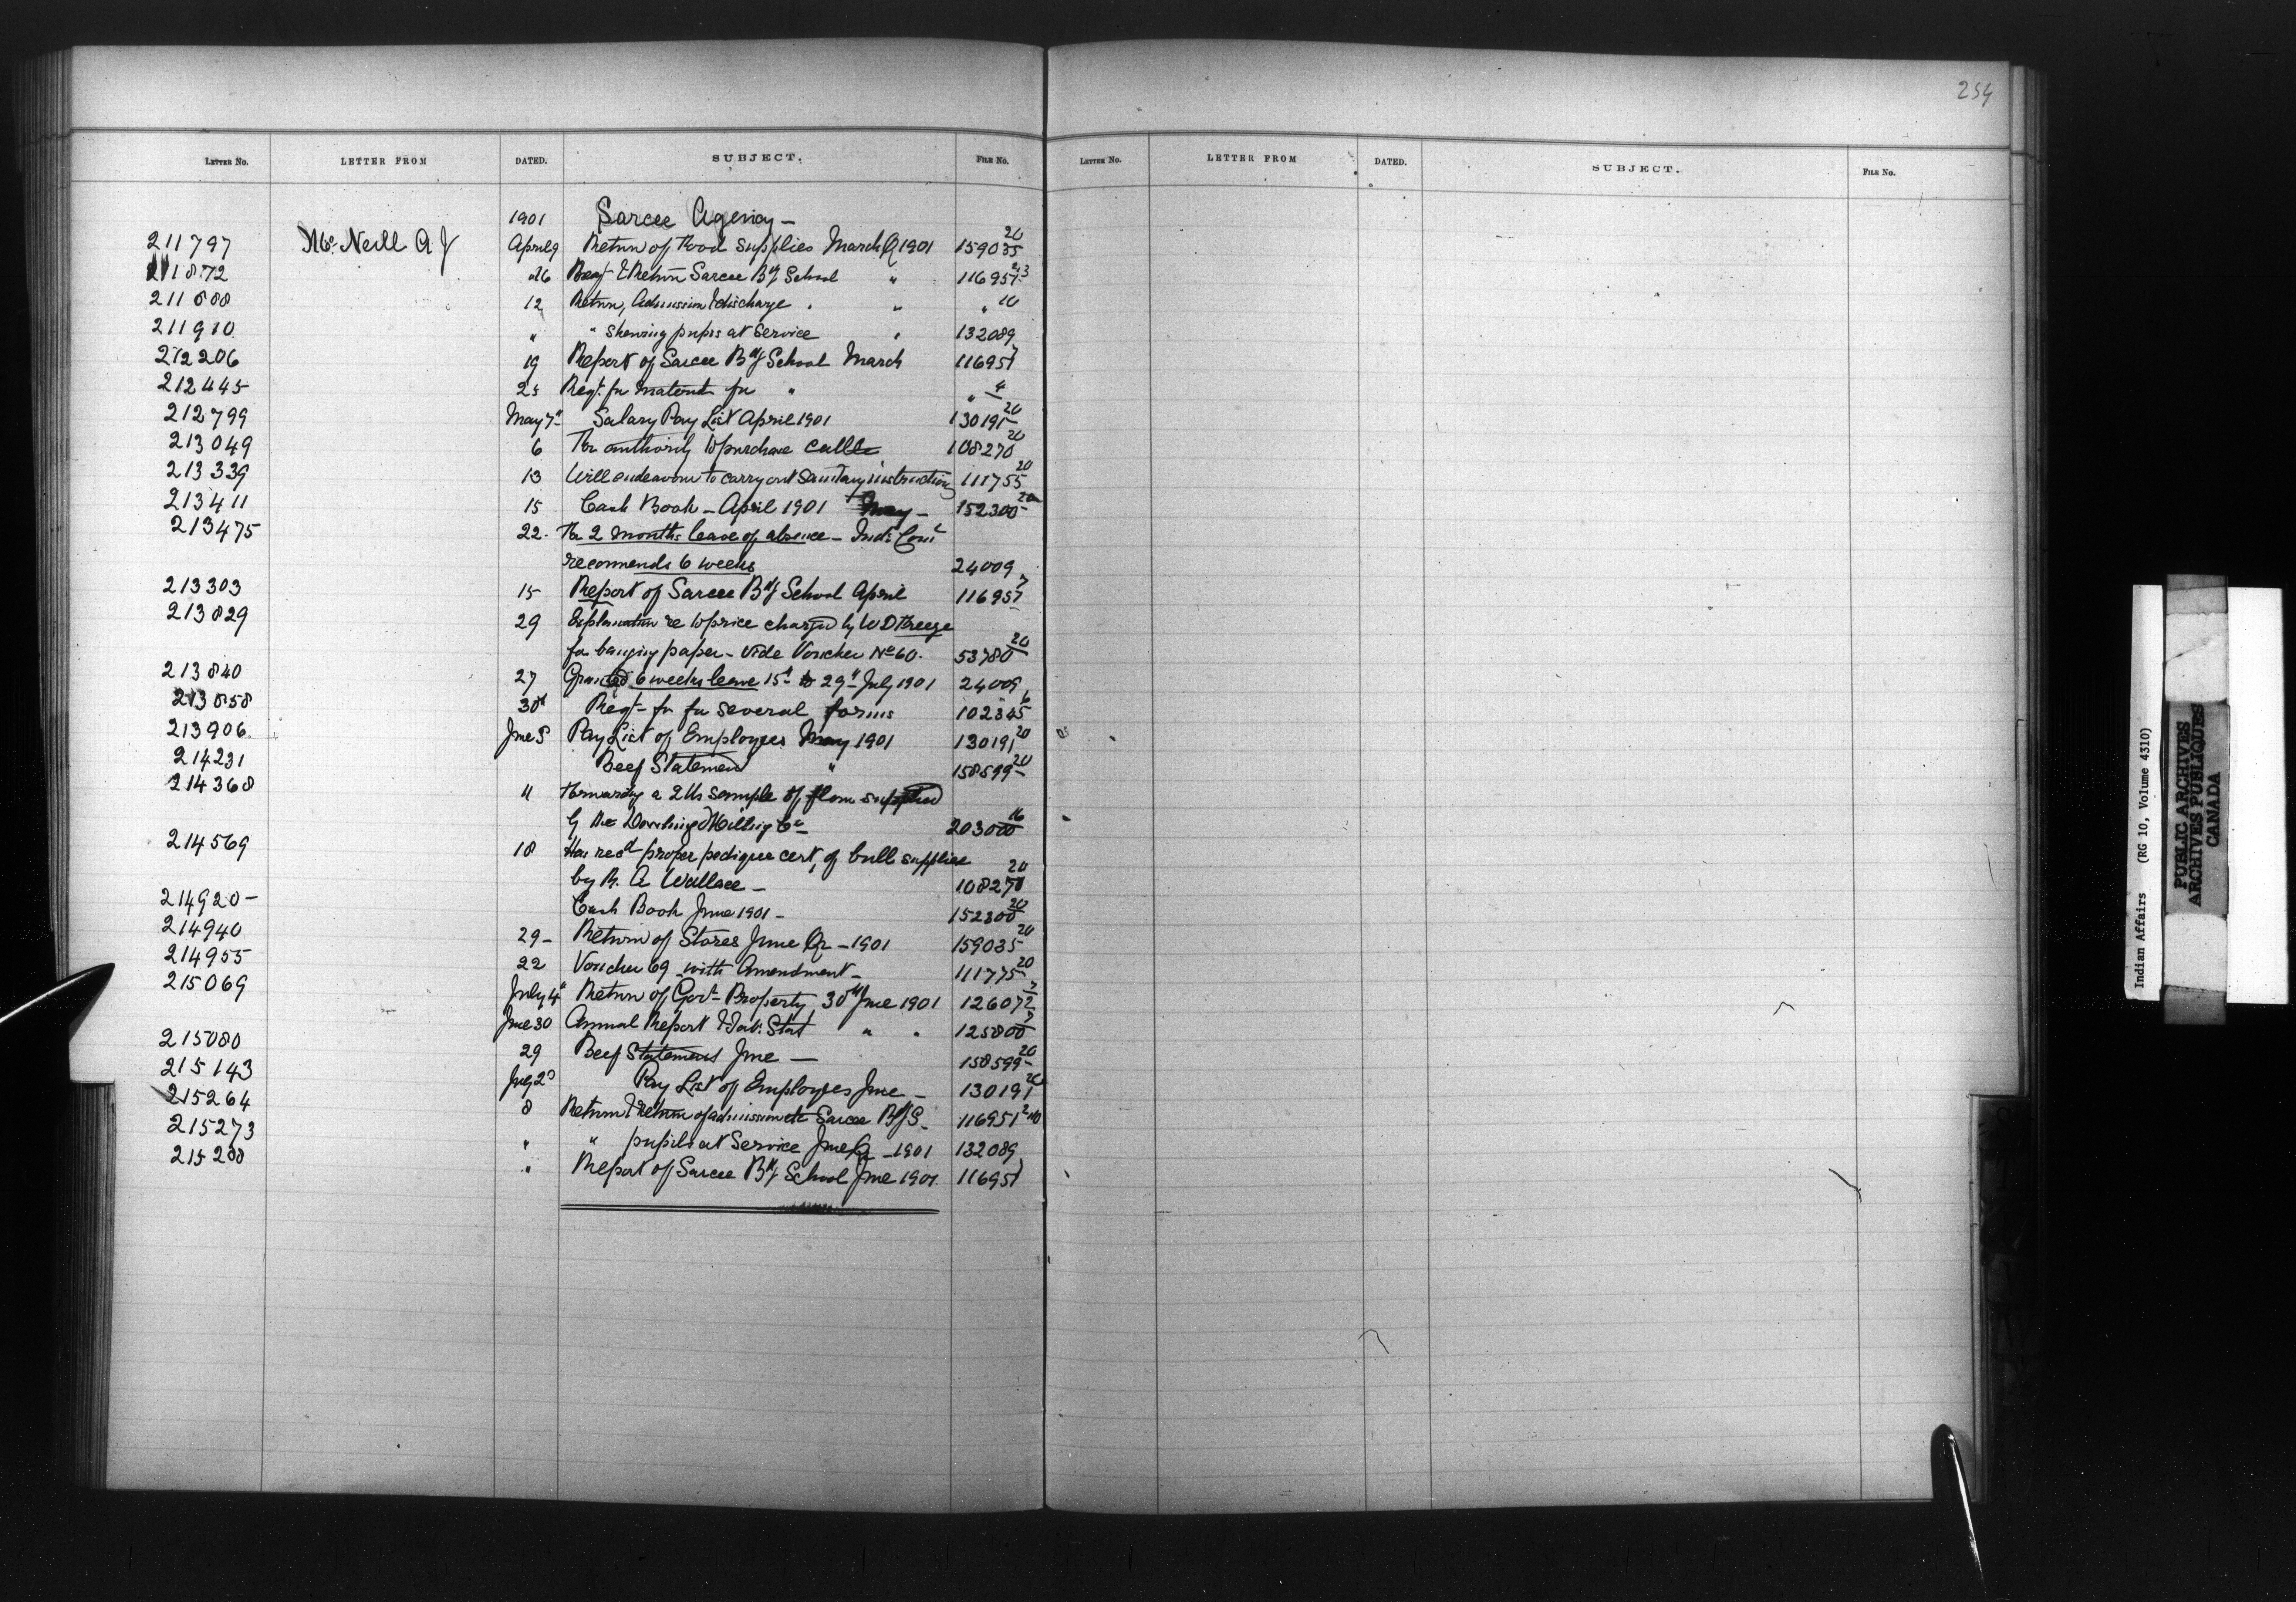 254
LETTER No. LETTER FROM DATED. SUBJECT. FILE No.
LETTER No. LETTER FROM DATED. SUBJECT. FILE No.
1901 Sarcee Agency —
211797 Mc Neill A J April 9 Return of Food Supplies March Q 1901 159035 20
211872 Return Sarcee Bdg School " 116951
12 Return, Admission & discharge " " 10
211910 " " Shewing pupils at Service " 132089
212206 19 Report of Sarcee Bdg School March 116951 7
212445 25 Reqt. for material for " " 4
212799 May 7th Salary Pay List April 1901 130191 20
213049 6 For authority to purchase cattle 108270 20
213339 13 Will endeavour to carry out Sanitary instructions 111755 20
213411 15 Cash Book — April 1901 152300 20
213475 22 For 2 months leave of absence — Ind: Comr
recommends 6 weeks 24009
213303 15 Report of Sarcee Bdg School April 116951 7
213829 29 Explanation re to price charged by W D
for paper — vide Voucher No 60. 53780 20
213840 27 Granted 6 weeks leave 15th to 29th July 1901 24009
213858 30th Reqt — for several forms 102345 6
213906 June 5 Pay List of Employees May 1901 130191 20
214231 Beef Statement " 158599 20
214368 11 Forwarding a 2 lb sample of flour supplied
by the Milling Co 203000 16
214569 18 Has recd proper pedigree cert, of bull supplied
by R. A Wallace — 108270 20
214920 — Cash Book June 1901 — 152300 20
214940 29 — Return of Stores June Qr — 1901 159035 20
214955 22 Voucher 69 with Amendment — 111775 20
215069 July 4th Return of Govt Property 30th June 1901 126072
June 30 Annual Report & Tab: Stat " " 125800
215080 29 Beef Statement June — 158599 20
215143 July 2d Pay List of Employees June — 130191 20
215264 8 Return of admission Sarcee BdgS — 116951
215273 " " pupils at Service June Qr — 1901 132089
" Report of Sarcee Bdg School June 1901 116951
Indian Affairs (RG 10, Volume 4310)
PUBLIC ARCHIVES
ARCHIVES PUBLIQUES
CANADA